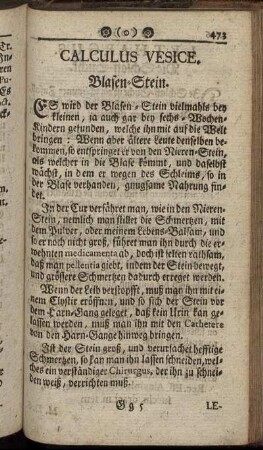 (o)
473
CALCULUS VESICE.
Blasen-Stein.
ES wird der Blasen-Stein vielmahls bey
kleinen, ja auch gar bey sechs-Wochen-
Kindern gefunden, welche ihn mit auf die Welt
bringen: Wenn aber ältere Leute denselben be-
kommen, so entspringet er von den Nieren-Stein,
als welcher in die Blase kömmt, und daselbst
wächst, in dem er wegen des Schleims, so in
der Blase verhanden, gnugsame Nahrung fin-
det.
In der Cur verfähret man, wie in den Nieren-
Stein, nemlich man stillet die Schmertzen, mit
dem Pulver, oder meinem Lebens-Balsam, und
so er noch nicht groß, führet man ihn durch die er-
wehnten medicamenta ab, doch ist selten rathsam,
daß man pellentia giebt, indem der Stein bewegt,
und grössere Schmertzen dadurch erreget werden.
Wenn der Leib verstopfft, muß man ihn mit ei-
nem Clystir eröffnen, und so sich der Stein vor
dem Harn-Gang geleget, daß kein Urin kan ge-
lassen werden, muß man ihn mit den Catheters
von den Harn-Gange hinweg bringen.
Ist der Stein groß, und verursachet hefftige
Schmertzen, so kan man ihn lassen schneiden, wel-
ches ein verständiger Chirurgus, der ihn zu schnei-
den weiß, verrichten muß.
Gg 5
LE-